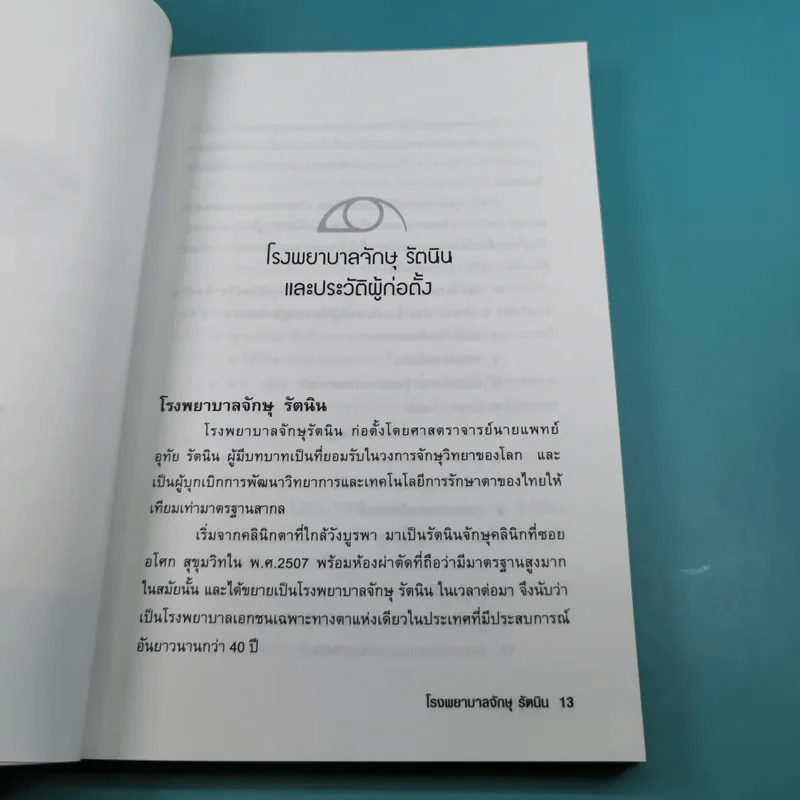 โรงพยาบาลจักษุ รัตนิน
และประวัติผู้ก่อตั้ง
โรงพยาบาลจักษุ รัตนิน
โรงพยาบาลจักษุรัตนิน ก่อตั้งโดยศาสตราจารย์นายแพทย์
อุทัย รัตนิน ผู้มีบทบาทเป็นที่ยอมรับในวงการจักษุวิทยาของโลก และ
เป็นผู้บุกเบิกการพัฒนาวิทยาการและเทคโนโลยีการรักษาตาของไทยให้
เทียมเท่ามาตรฐานสากล
เริ่มจากคลินิกตาที่ใกล้วังบูรพา มาเป็นรัตนินจักษุคลินิกที่ซอย
อโศก สุขุมวิทใน พ.ศ.2507 พร้อมห้องผ่าตัดที่ถือว่ามีมาตรฐานสูงมาก
ในสมัยนั้น และได้ขยายเป็นโรงพยาบาลจักษุ รัตนิน ในเวลาต่อมา จึงนับว่า
เป็นโรงพยาบาลเอกชนเฉพาะทางตาแห่งเดียวในประเทศที่มีประสบการณ์
อันยาวนานกว่า 40 ปี
โรงพยาบาลจักษุ รัตนิน 13